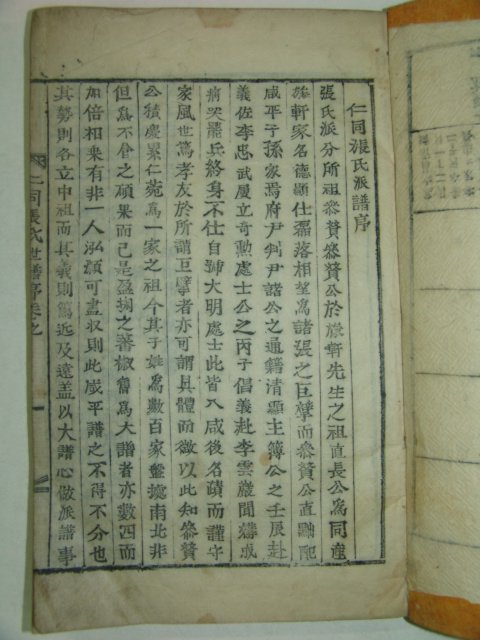 仁同張氏派譜序
張氏派分所祖參贊參贊公於旅軒先生之祖直長公爲同產
旅軒家名德顯仕磊落相望爲諸張之巨擘而參贊公直勵配
咸平子孫家焉府尹判尹諸公之通籍淸顯主簿公之壬辰赴
義佐李忠武屢立奇勲處士公之丙子倡義赴李雲巖聞媾成
痛哭罷兵終身不仕自靖大明處士此皆入咸後名蹟而謹守
家風世篤孝友於所謂巨擘者亦可謂具體而微以此知參贊
公積慶累仁菀爲一家之祖今其子姓爲數百家盤據南北非
但爲不食之碩果而已是盈掬之蕃椒舊爲大譜者亦數四而
加倍相乘有非一人泓穎可盡収則此咸平譜之不得不分也
其勢則各立中祖而其義則篤近及遠盖以大譜心做派譜事
仁同張氏世譜序卷之